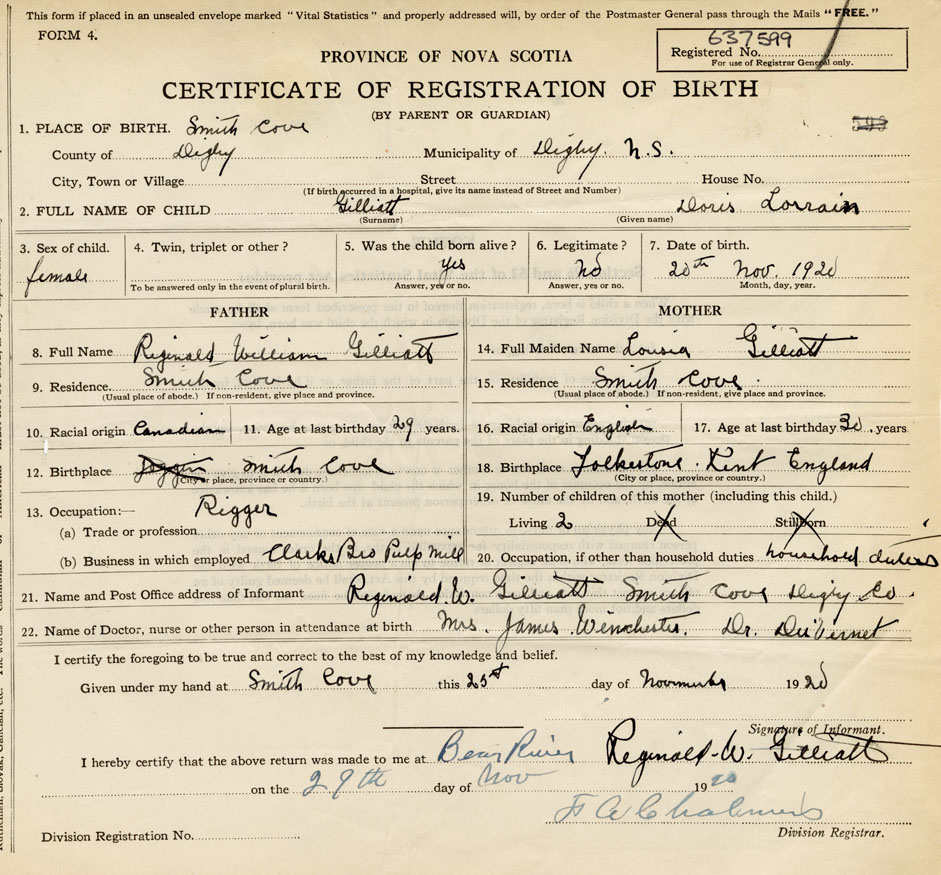 This form if placed in an unsealed envelope marked "Vital Statistics" and properly addressed will, by order of the Postmaster General pass through the Mails "FREE."
FORM 4.
637599
Registered No.
For use of Registrar General only.
PROVINCE OF NOVA SCOTIA
CERTIFICATE OF REGISTRATION OF BIRTH
(BY PARENT OR GUARDIAN)
599
1. PLACE OF BIRTH. Smith Cove
County of Digby Municipality of Digby. N.S.
City, Town or Village Street House No.
(If birth occurred in a hospital, give its name instead of Street and Number)
2. FULL NAME OF CHILD Gilliatt Doris Lorrain
(Surname) (Given name)
3. Sex of child. 4. Twin, triplet or other? 5. Was the child born alive? 6. Legitimate? 7. Date of birth.
female yes no 20th Nov. 1920
To be answered only in the event of plural birth. Answer, yes or no. Answer, yes or no. Month, day, year.
FATHER MOTHER
8. Full Name Reginald William Gilliatt 14. Full Maiden Name Lousia Gilliatt
9. Residence. Smith Cove 15. Residence Smith Cove.
(Usual place of abode.) If non-resident, give place and province. (Usual place of abode.) If non-resident, give place and province.
10. Racial origin Canadian 11. Age at last birthday 29 years. 16. Racial origin English 17. Age at last birthday 30 years
12. Birthplace Joggin Smith Cove 18. Birthplace Folkestone. Kent England
(City or place, province or country.) (City or place, province or country.)
19. Number of children of this mother (including this child.)
13. Occupation:— Rigger
Living 2 Dead Stillborn
(a) Trade or profession
(b) Business in which employed Clarks Bro Pulp Mill 20. Occupation, if other than household duties household duties
21. Name and Post Office address of Informant Reginald W. Gilliatt Smith Cove Digby Co.
22. Name of Doctor, nurse or other person in attendance at birth Mrs. James Winchester. Dr. DuVernet
I certify the foregoing to be true and correct to the best of my knowledge and belief.
Given under my hand at Smith Cove this 25st day of Novmuber 1920
Signature of Informant.
Reginald. W. Gilliatt
I hereby certify that the above return was made to me at Bear River
on the 29th day of Nov 1920
F A Chalmers
Division Registration No. Division Registrar.